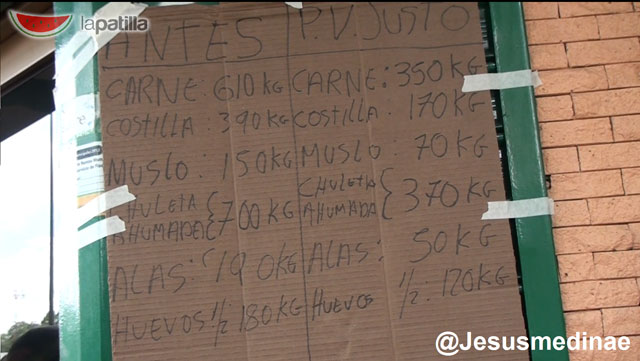 lapatilla
ANTES
CARNE: 610 KG
COSTILLA: 390 KG
MUSLO: 150 KG
CHULETA
AHUMADA { 700 KG
ALAS: 190 KG
HUEVOS 1/2 180 KG
P.V JUSTO
CARNE: 350 KG
COSTILLA: 170 KG
MUSLO: 70 KG
CHULETA
AHUMADA { 370 KG
ALAS: 50 KG
HUEVOS 1/2: 120 KG
@Jesusmedinae